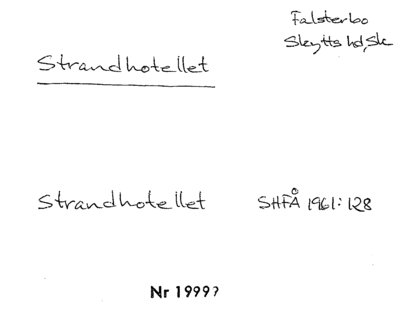 Falsterbo
Skytts hd, Sk
Strandhotellet
Strandhotellet SHFÅ 1961:128
Nr 19997